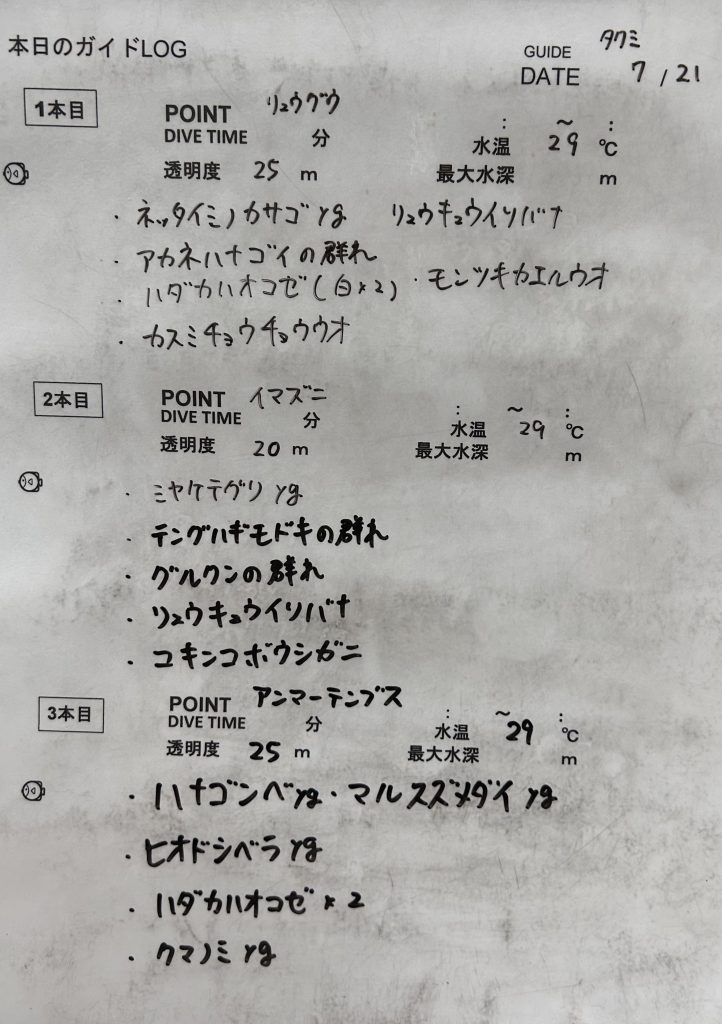 本日のガイドLOG
GUIDE タクミ
DATE 7/21
1本目 POINT リュウグウ
DIVE TIME 分 : ～ :
透明度 25 m 水温 29 ℃
最大水深 m
・ネッタイミノカサゴ yg リュウキュウイソバナ
・アカネハナゴイの群れ
・ハダカハオコゼ(白×2) ・モンツキカエルウオ
・カスミチョウチョウウオ
2本目 POINT イマズニ
DIVE TIME 分 : ～ :
透明度 20 m 水温 29 ℃
最大水深 m
・ミヤケテグリ yg
・テングハギモドキの群れ
・グルクンの群れ
・リュウキュウイソバナ
・コキンコボウシガニ
3本目 POINT アンマーテンブス
DIVE TIME 分 : ～ :
透明度 25 m 水温 29 ℃
最大水深 m
・ハナゴンベ yg・マルスズメダイ yg
・ヒオドシベラ yg
・ハダカハオコゼ×2
・クマノミ yg